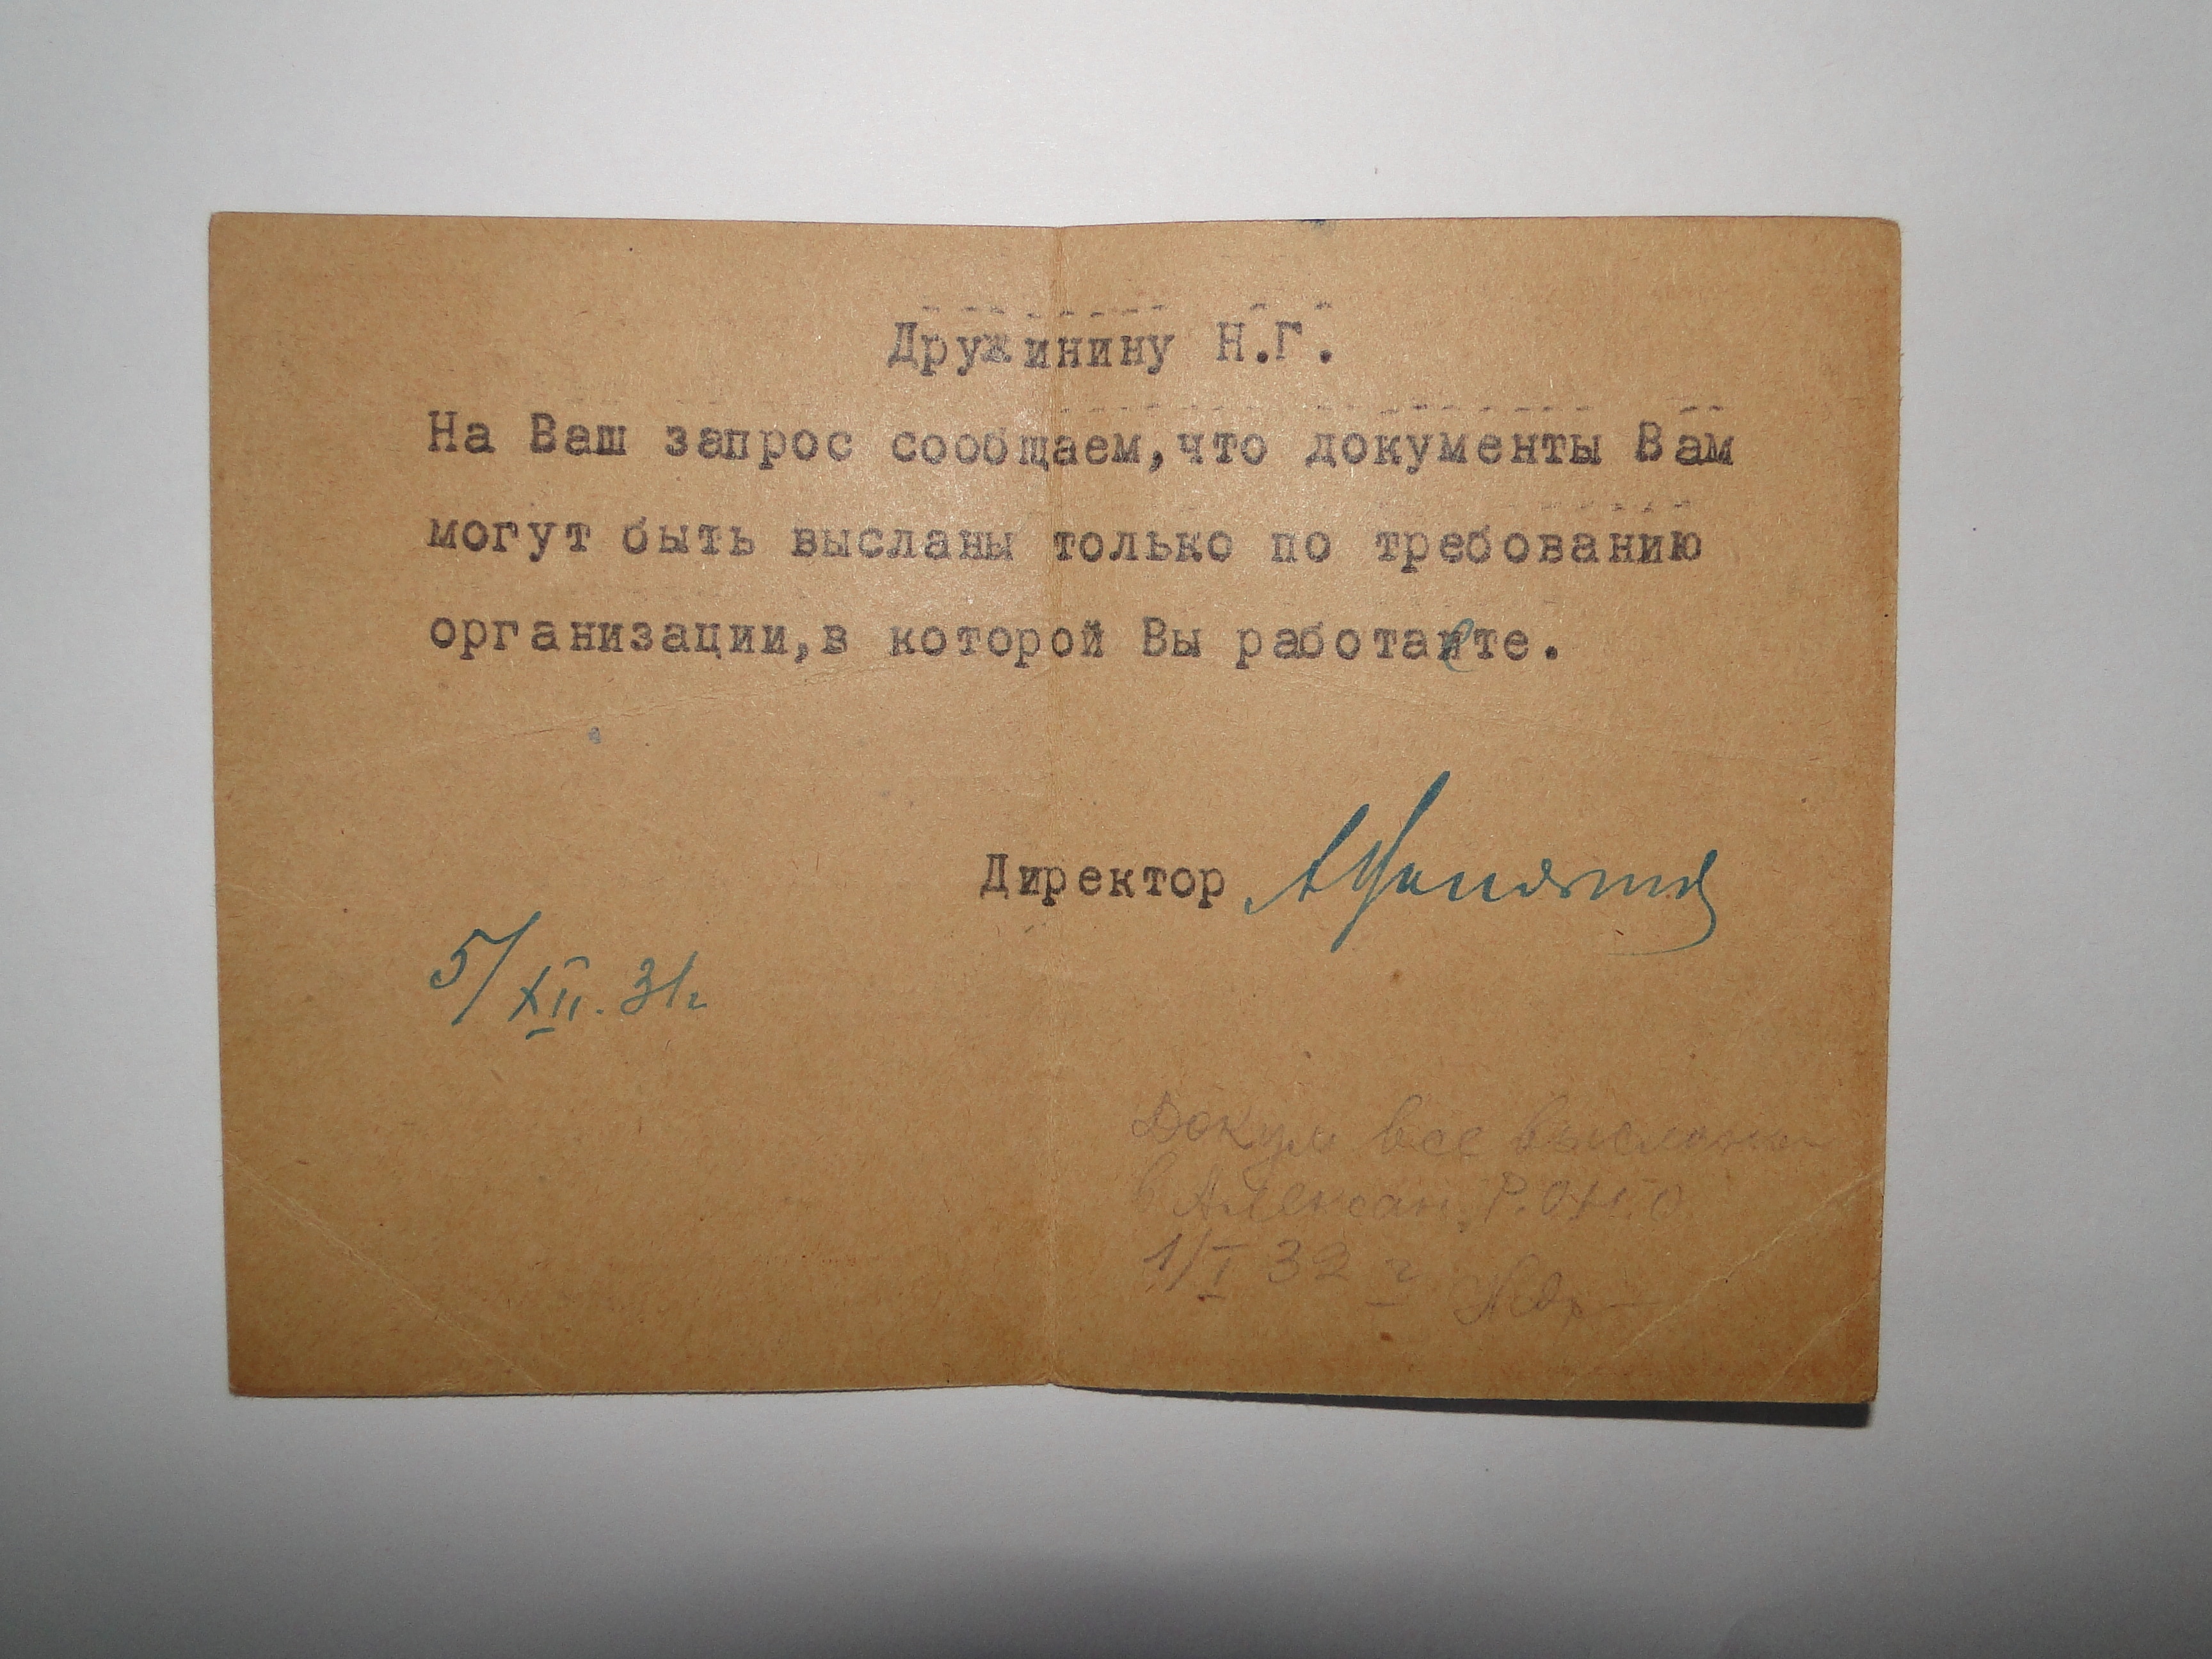 Дружинину Н.Г.
На Ваш запрос сообщаем,что документы Вам
могут быть высланы только по требованию
организации,в которой Вы работаете.
Директор
5/XII. 31г
Докум все высланы
в Алексан. Р.ОНО
1/I 32 г